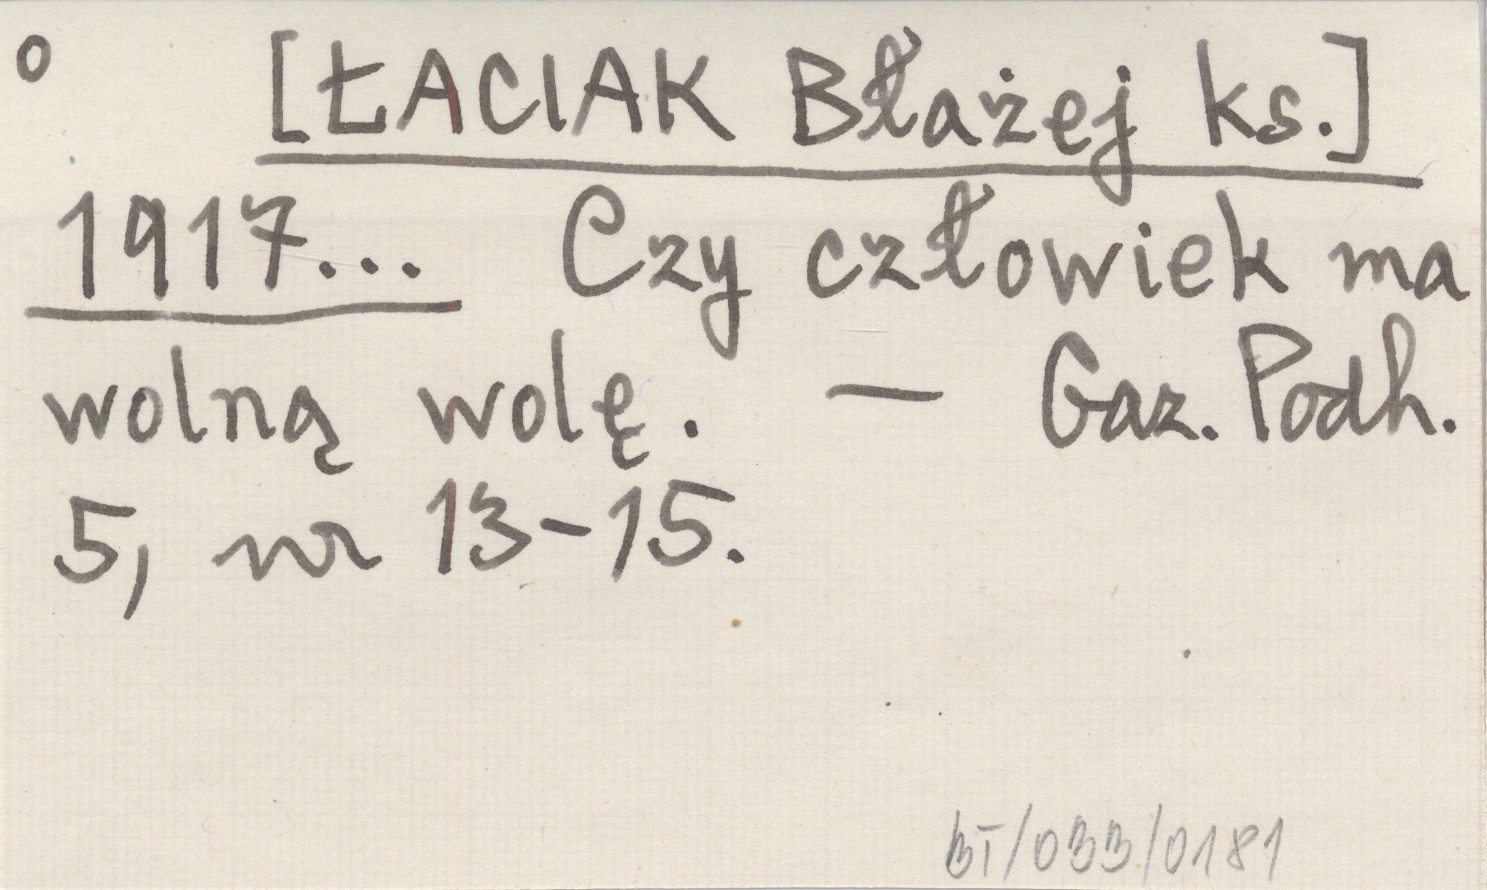 o [ŁACIAK Błażej ks.]
1917... Czy człowiek ma
wolną wolę. — Gaz. Podh.
5, nr 13-15.
BT/033/0181